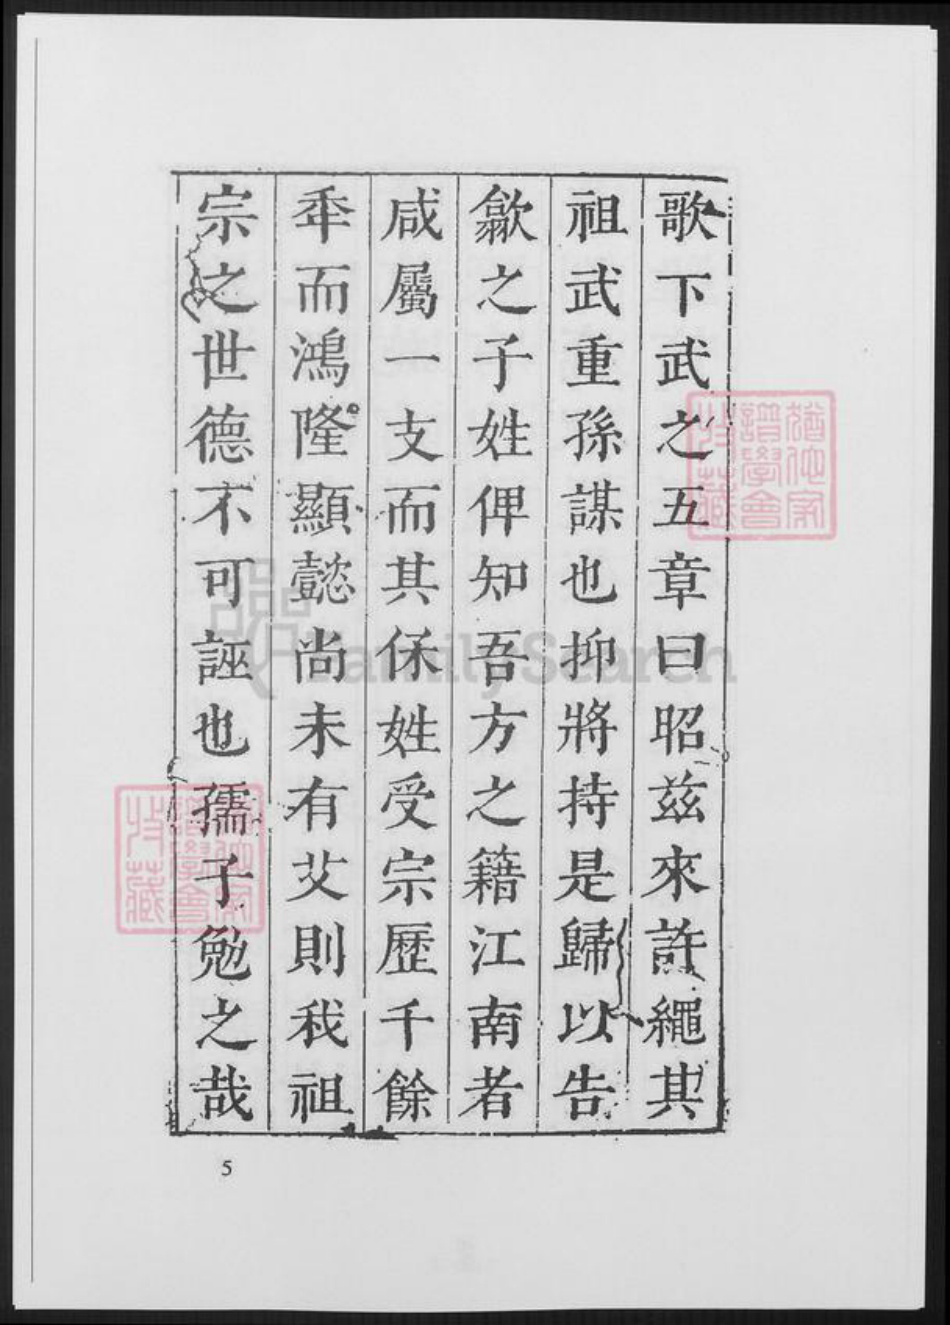 歌下武之五章曰昭茲來許繩其
祖武重孫謀也抑將持是歸以告
歙之子姓俾知吾方之籍江南者
咸屬一支而其保姓受宗歷千餘
秊而鴻隆顯懿尚未有艾則我祖
宗之世德不可誣也孺子勉之哉
5
FamilySearch